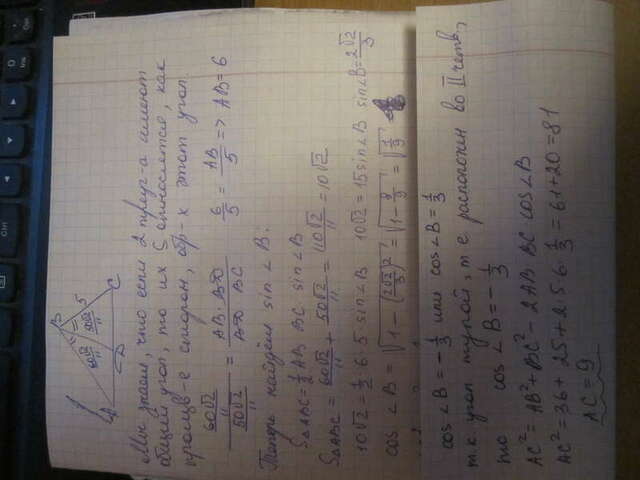 B
60√2/11 50√2/11 5
A D C
Мы знаем, что если 2 треуг-а имеют
общий угол, то их S относятся, как
произв-е сторон, обр-х этот угол.
(60√2/11)/(50√2/11) = AB · BD/BD BC 6/5 = AB/5 => AB = 6
Теперь найдём sin ∠B:
S△ABC = 1/2 AB BC · sin ∠B
S△ABC = 60√2/11 + 50√2/11 = 110√2/11 = 10√2
10√2 = 1/2 · 6 · 5 · sin∠B 10√2 = 15 sin∠B sin∠B = 2√2/3
cos ∠B = √(1 - (2√2/3)²) = √(1 - 8/9) = √(1/9)
cos ∠B = -1/3 или cos ∠B = 1/3
т.к. угол тупой, т е. расположен во II четв,
то cos ∠B = -1/3
AC² = AB² + BC² - 2 AB · BC · cos ∠B
AC² = 36 + 25 + 2 · 5 · 6 · 1/3 = 61 + 20 = 81
AC = 9